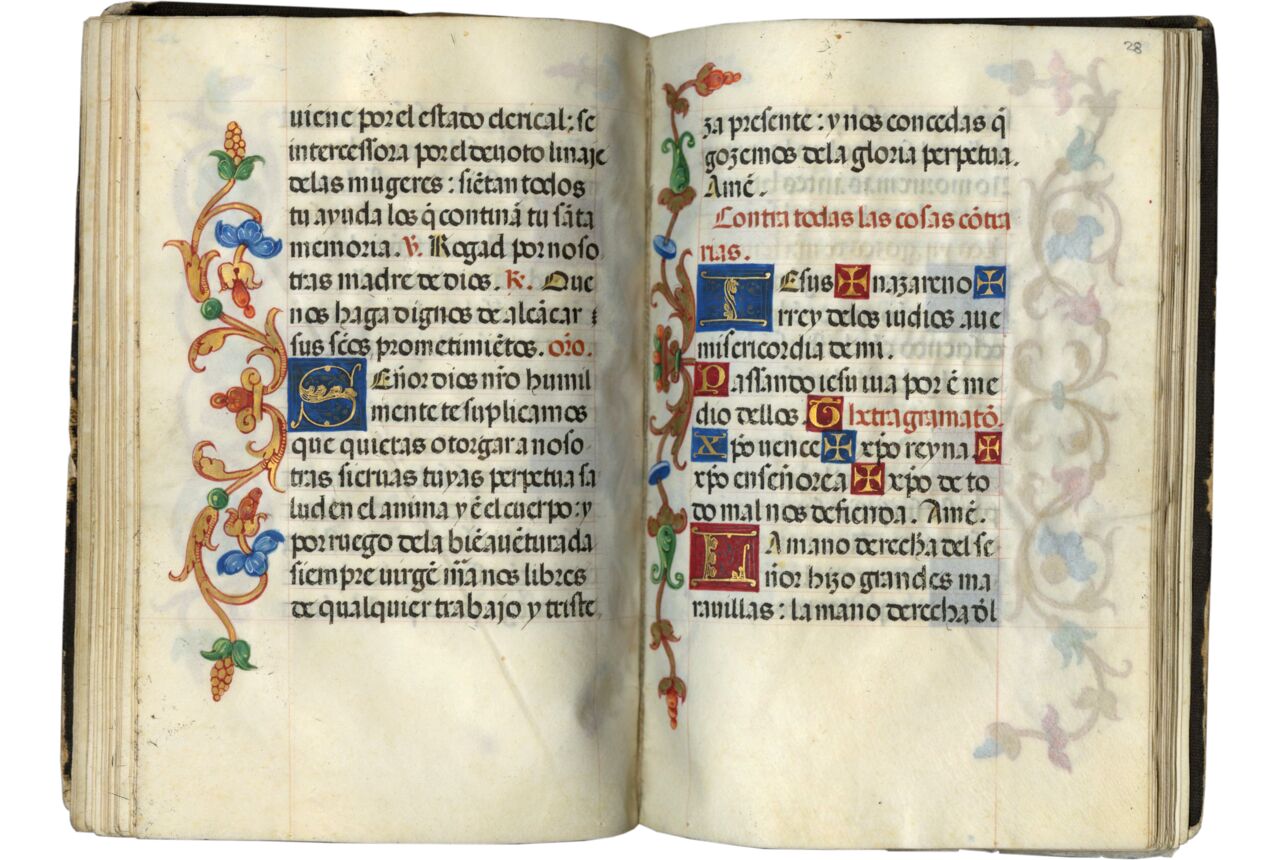 uiene por el estado clerical: se
intercessora por el deuoto linaje
delas mugeres: siẽtan todos
tu ayuda los q̃ continuã tu sãta
memoria. V. Rogad por noso
tras madre de dios. R. Que
nos haga dignos de alcãcar
sus sctõs prometimiẽtos. orõ.
SEñor dios nr̃o humil
mente te suplicamos
que quieras otorgar a noso
tras sieruas tuyas perpetua sa
lud en el anima y ẽ el cuerpo: y
por ruego dela biẽauẽturada
siempre uirgẽ mr̃ia nos libres
de qualquier trabajo y triste
28
za presente: y nos concedas q̃
gozemos dela gloria perpetua.
Amẽ.
Contra todas las cosas cõtra
rias.
IEsus ✠ nazareno ✠
rrey delos iudios aue
misericordia de mi.
Passando iesu iua por ẽ me
dio dellos. Thetragramatõ.
xp̃o uence ✠ xp̃o reyna ✠
xp̃o enseñorea ✠ xp̃o de to
do mal nos defienda. Amẽ.
LA mano derecha del se
ñor hizo grandes ma
rauillas: la mano derecha dl̃